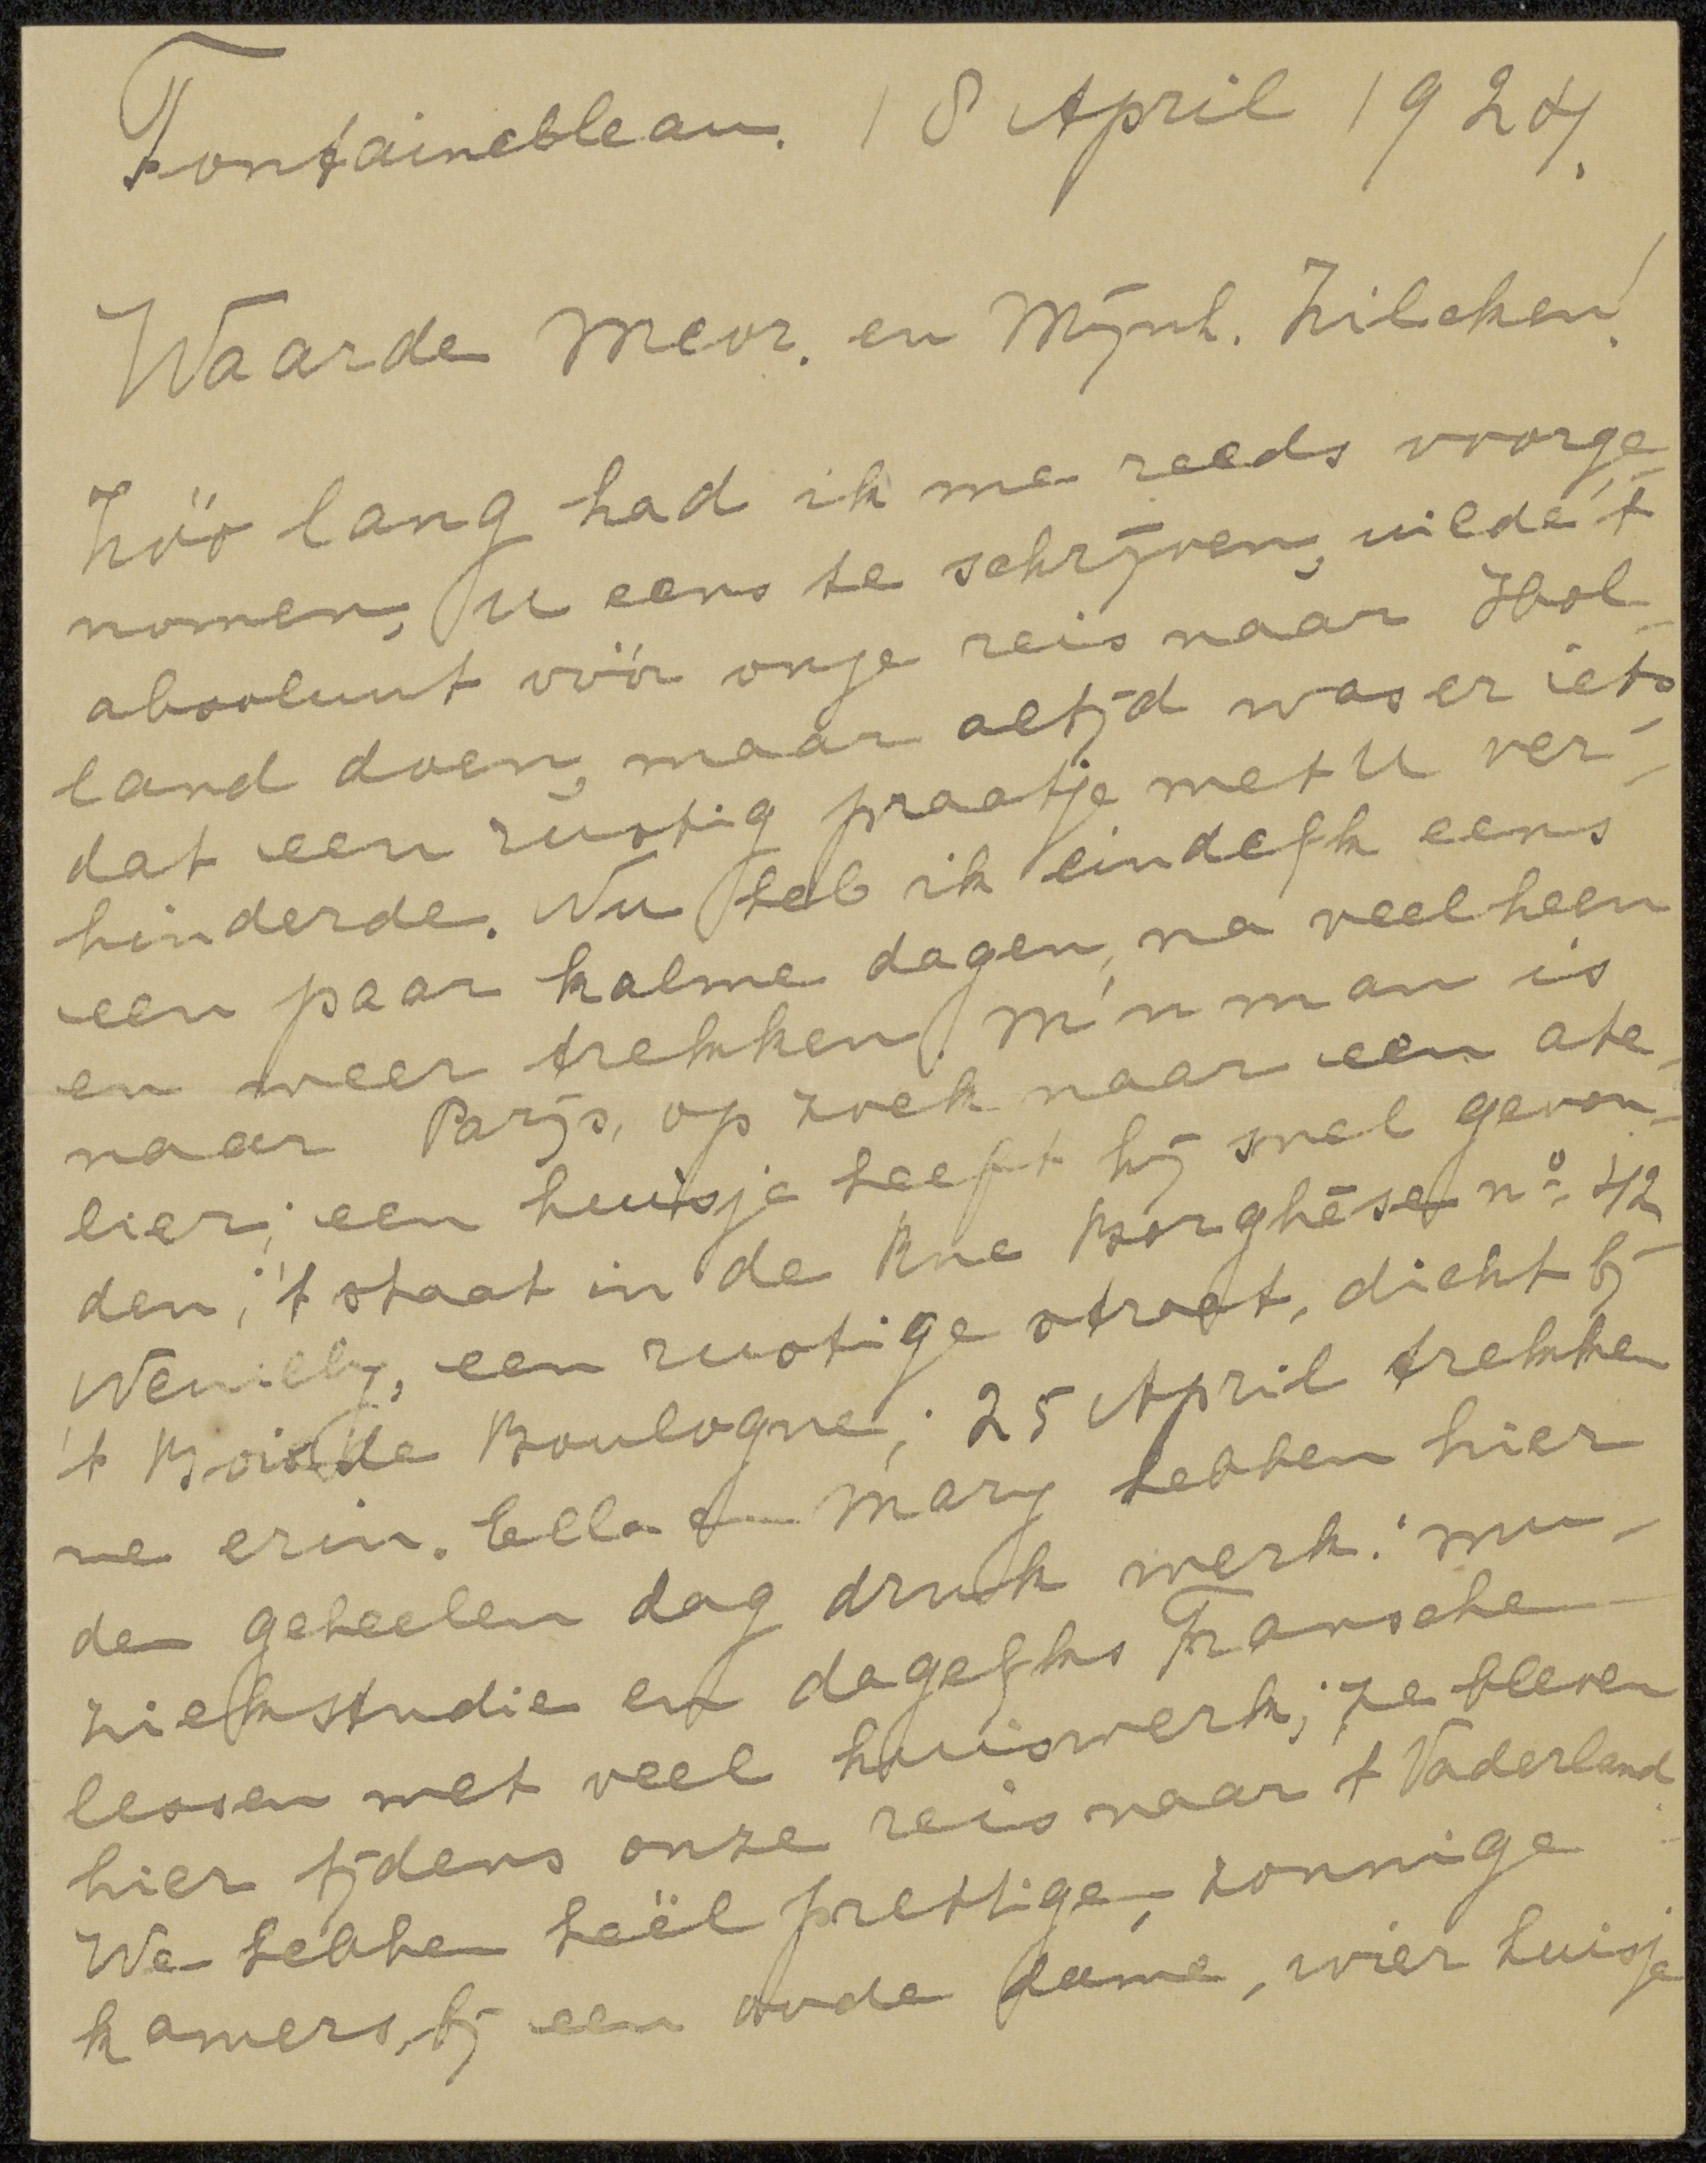 Fontainebleau. 18 April 1924.
Waarde Mevr. en Mijnh. Zilcken!
Zóó lang had ik me reeds voorge-
nomen, U eens te schrijven, wilde 't
absoluut vóór onze reis naar Hol-
land doen, maar altijd was er iets,
dat een rustig praatje met U ver-
hinderde. Nu heb ik eindelijk eens
een paar kalme dagen, na veel heen
en weer trekken. M'n man is
naar Parijs, op zoek naar een ate-
lier; een huisje heeft hij snel gevon-
den; 't staat in de Rue Borghèse no. 42
Neuilly, een rustige straat, dicht bij
't Bois de Boulogne; 25 April trekken
we erin. Ella en Mary hebben hier
den geheelen dag druk werk: mu-
ziekstudie en dagelijks Fransche
lessen met veel huiswerk; ze bleven
hier tijdens onze reis naar 't Vaderland.
We hebben heël prettige, zonnige
kamers, bij een oude dame, wier huisje